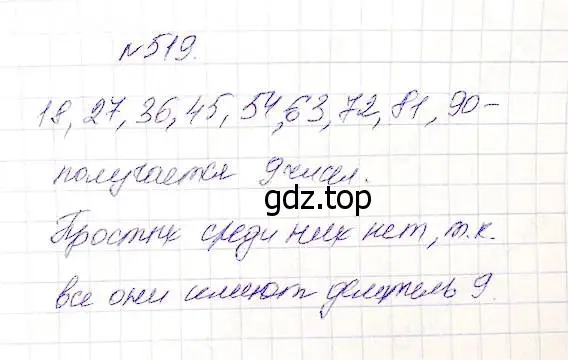 №519.
18, 27, 36, 45, 54, 63, 72, 81, 90 –
получается 9 чисел.
gdz.top
Простых среди них нет, т.к.
все они имеют делитель 9.